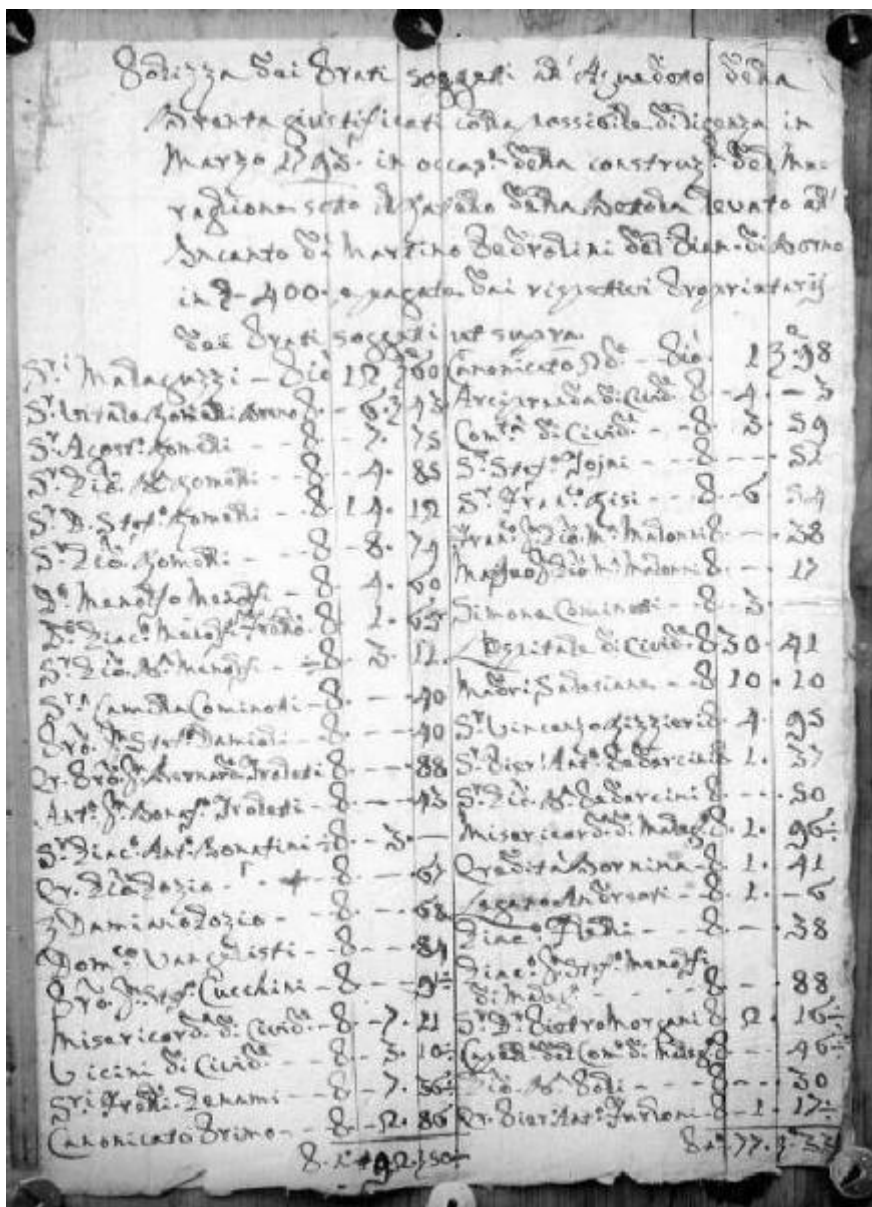 Polizza dei Prati soggetti all' Aquedoto della
Brenta giustificati colla possibile diligenza in
Marzo 1793. in occap.e della construz.e del Mu=
raglione sotto il della levato all'
Incanto di Martino Pedrolini del Pian di Borno
in 400. e pagate dai rispettivi Proprietarij
dei Prati soggetti ut supra.
S.ri Malaguzzi - Piò 12 360
S.r Vitale Gomelli Breno P. - 6. 343
S.r Gomelli - - P. - 7. 75
S.r Gio. B. Gomelli - - P. - 4. 85
S.r D. Stef.o Gomelli - P. 14. 12
S.r Gio. Gomelli - - P. - 8. 79
Menolfo Menolfi - P. - 4. 60
Giac.o Menolfi P. - 1. 65
S.r Gio. B.a Menolfi - P. - 3. 11
S.ra Camilla Cominelli - P. - - - 40
Pro. Stef.o Damioli - P. - - - 40
Qr. Bernard. Troletti P. - - - 88
Ant.o Bonaf.o Troletti - P. - - - 43
S.r Giac.o Ant.o Bonafini P. - 3. -
Qr. Zozio - - - 67
Damiano Zozio - P. - - - 68
Dom.co Vangelisti - P. - - - 84
Pro. Stef.o Cucchini - P. - -
Misericord.a di Civid.e - P. - 7. 21
Vicini di Civid.e - - P. - 3. 10
S.ri Frelli Zenami - - P. - 7. 36
Canonicato Primo - - P. - 2. 86
92. 350
Canonicato 2.do - Piò. 13. 98
Arcipretada di Civid.e P. - 4. - 3
Com.tà di Civid.e - - P. - 3. 59
S.r Stef.o Tojni - - P. - - 52
S.r Fran.co Gisi - - P. - 6. 54
Fran.co Gio. M.a Malonni P. - - - 38
Maffeo Gio. M.a Malonni P. - - - 17
Simone Cominelli - - P. - 3. -
L'Ospitale di Civid.e P. 30. 41
Madri Salesiane - - P. 10. 10
S.r Vincenzo Gizzieri P. 4. 95
S.r Pier Ant.o P. 1. 37
S.r Gio. B.a P. - - . 50
Misericord.a di Maleg.o P. 1. 96
Eredità Bornina P. 1. 41
Pagano Andreoti - P. 1. - 6
Giac.o - P. - - . 38
Giac.o Stef.o Menolfi
di Maleg.o - - - P. - - 88
S.r D.r Pietro Morgani P. 2. 16
del Com.e di Maleg.o - - 46
Gio. B.a Poli - - P. - - . 30
Qr. Pier Ant.o Furloni - P. - 1. 17
77. 3. 33